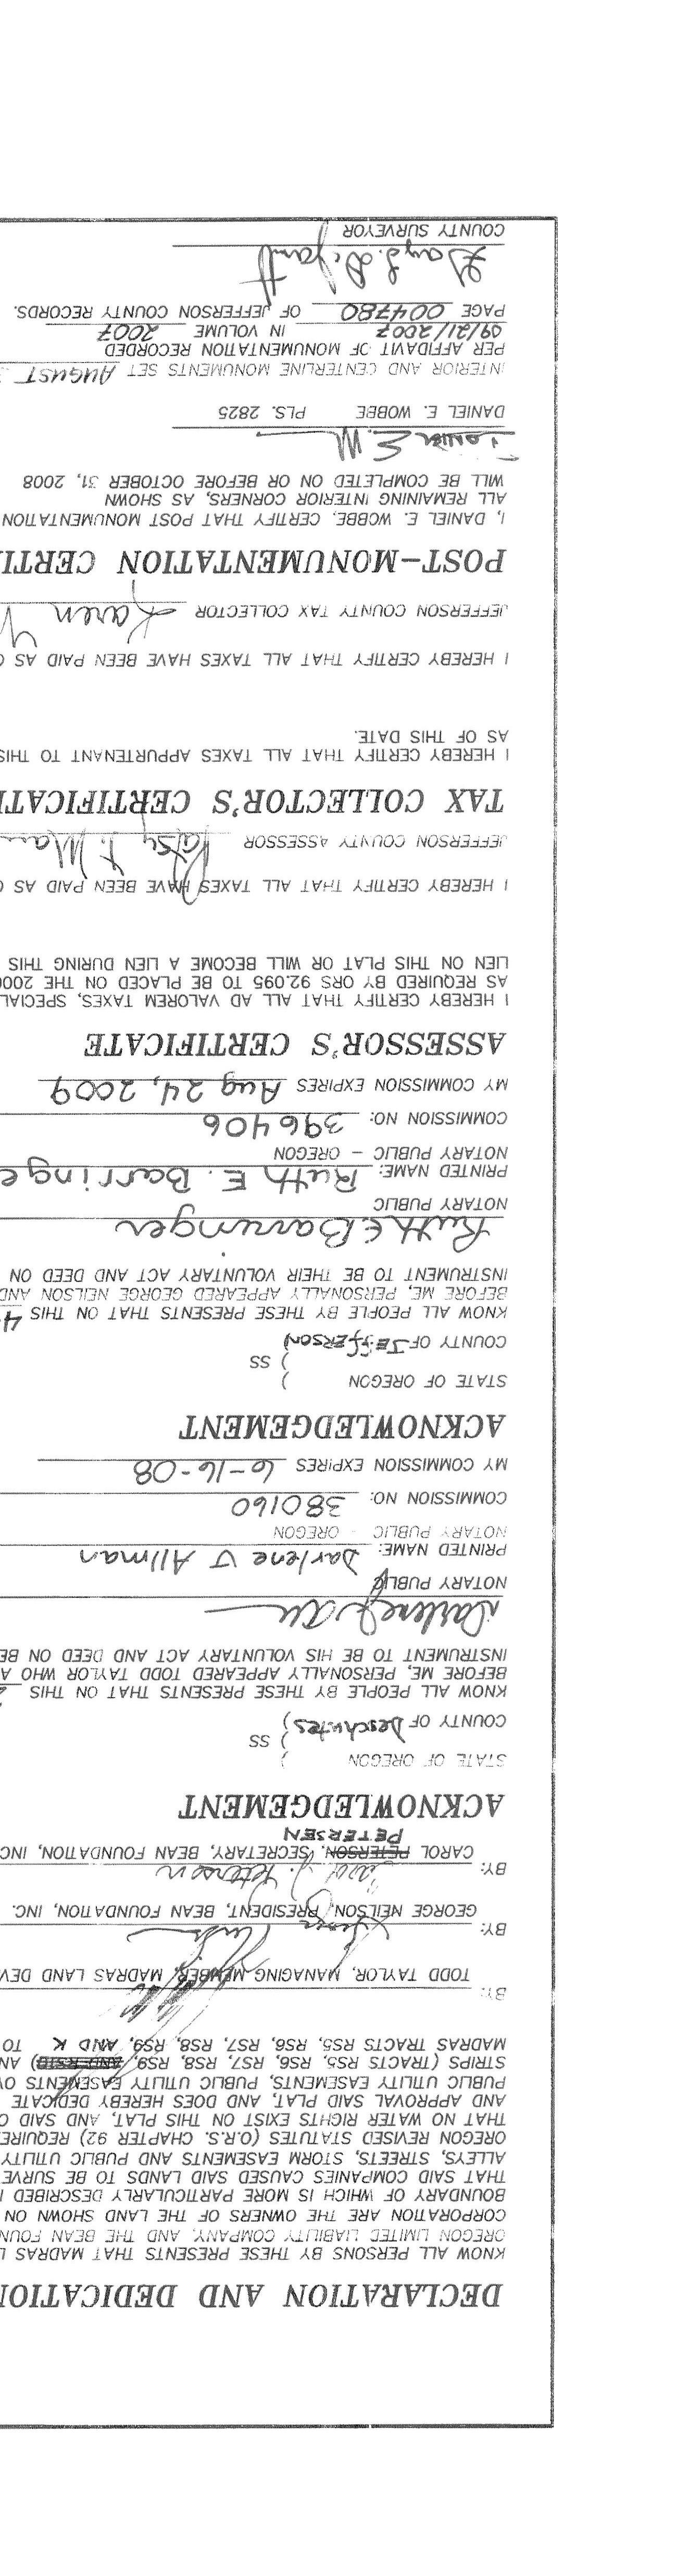 DECLARATION AND DEDICATION
KNOW ALL PERSONS BY THESE PRESENTS THAT MADRAS L
OREGON LIMITED LIABILITY COMPANY, AND THE BEAN FOUN
CORPORATION ARE THE OWNERS OF THE LAND SHOWN ON
BOUNDARY OF WHICH IS MORE PARTICULARLY DESCRIBED I
THAT SAID COMPANIES CAUSED SAID LANDS TO BE SURVE
ALLEYS, STREETS, STORM EASEMENTS AND PUBLIC UTILITY
OREGON REVISED STATUTES (O.R.S. CHAPTER 92) REQUIRE
THAT NO WATER RIGHTS EXIST ON THIS PLAT, AND SAID C
AND APPROVAL SAID PLAT, AND DOES HEREBY DEDICATE
PUBLIC UTILITY EASEMENTS, PUBLIC UTILITY EASEMENTS OV
STRIPS (TRACTS RS5, RS6, RS7, RS8, RS9, AND RS10) AN
MADRAS TRACTS RS5, RS6, RS7, RS8, RS9, AND K TO
BY:
TODD TAYLOR, MANAGING MEMBER, MADRAS LAND DEV
BY: George Neilson
GEORGE NEILSON, PRESIDENT, BEAN FOUNDATION, INC.
BY: Carol J. Petersen
CAROL PETERSON, SECRETARY, BEAN FOUNDATION, INC
PETERSEN
ACKNOWLEDGEMENT
STATE OF OREGON )
) SS
COUNTY OF Deschutes )
KNOW ALL PEOPLE BY THESE PRESENTS THAT ON THIS 2
BEFORE ME, PERSONALLY APPEARED TODD TAYLOR WHO A
INSTRUMENT TO BE HIS VOLUNTARY ACT AND DEED ON BE
Darlene J All
NOTARY PUBLIC
PRINTED NAME: Darlene J Allman
NOTARY PUBLIC - OREGON
COMMISSION NO: 380160
MY COMMISSION EXPIRES 6-16-08
ACKNOWLEDGEMENT
STATE OF OREGON )
) SS
COUNTY OF JEFFERSON )
KNOW ALL PEOPLE BY THESE PRESENTS THAT ON THIS 4
BEFORE ME, PERSONALLY APPEARED GEORGE NEILSON AND
INSTRUMENT TO BE THEIR VOLUNTARY ACT AND DEED ON
Ruth E Barringer
NOTARY PUBLIC
PRINTED NAME: Ruth E. Barringe
NOTARY PUBLIC - OREGON
COMMISSION NO: 396406
MY COMMISSION EXPIRES Aug 24, 2009
ASSESSOR'S CERTIFICATE
I HEREBY CERTIFY THAT ALL AD VALOREM TAXES, SPECIAL
AS REQUIRED BY ORS 92.095 TO BE PLACED ON THE 200
LIEN ON THIS PLAT OR WILL BECOME A LIEN DURING THIS
I HEREBY CERTIFY THAT ALL TAXES HAVE BEEN PAID AS O
JEFFERSON COUNTY ASSESSOR Patsy
TAX COLLECTOR'S CERTIFICATE
I HEREBY CERTIFY THAT ALL TAXES APPURTENANT TO THIS
AS OF THIS DATE.
I HEREBY CERTIFY THAT ALL TAXES HAVE BEEN PAID AS O
JEFFERSON COUNTY TAX COLLECTOR Karen
POST-MONUMENTATION CERTI
I, DANIEL E. WOBBE. CERTIFY THAT POST MONUMENTATION
ALL REMAINING INTERIOR CORNERS, AS SHOWN
WILL BE COMPLETED ON OR BEFORE OCTOBER 31, 2008
DANIEL E. WOBBE PLS. 2825
INTERIOR AND CENTERLINE MONUMENTS SET AUGUST
PER AFFIDAVIT OF MONUMENTATION RECORDED
09/21/2007 IN VOLUME 2007
PAGE 004780 OF JEFFERSON COUNTY RECORDS.
COUNTY SURVEYOR